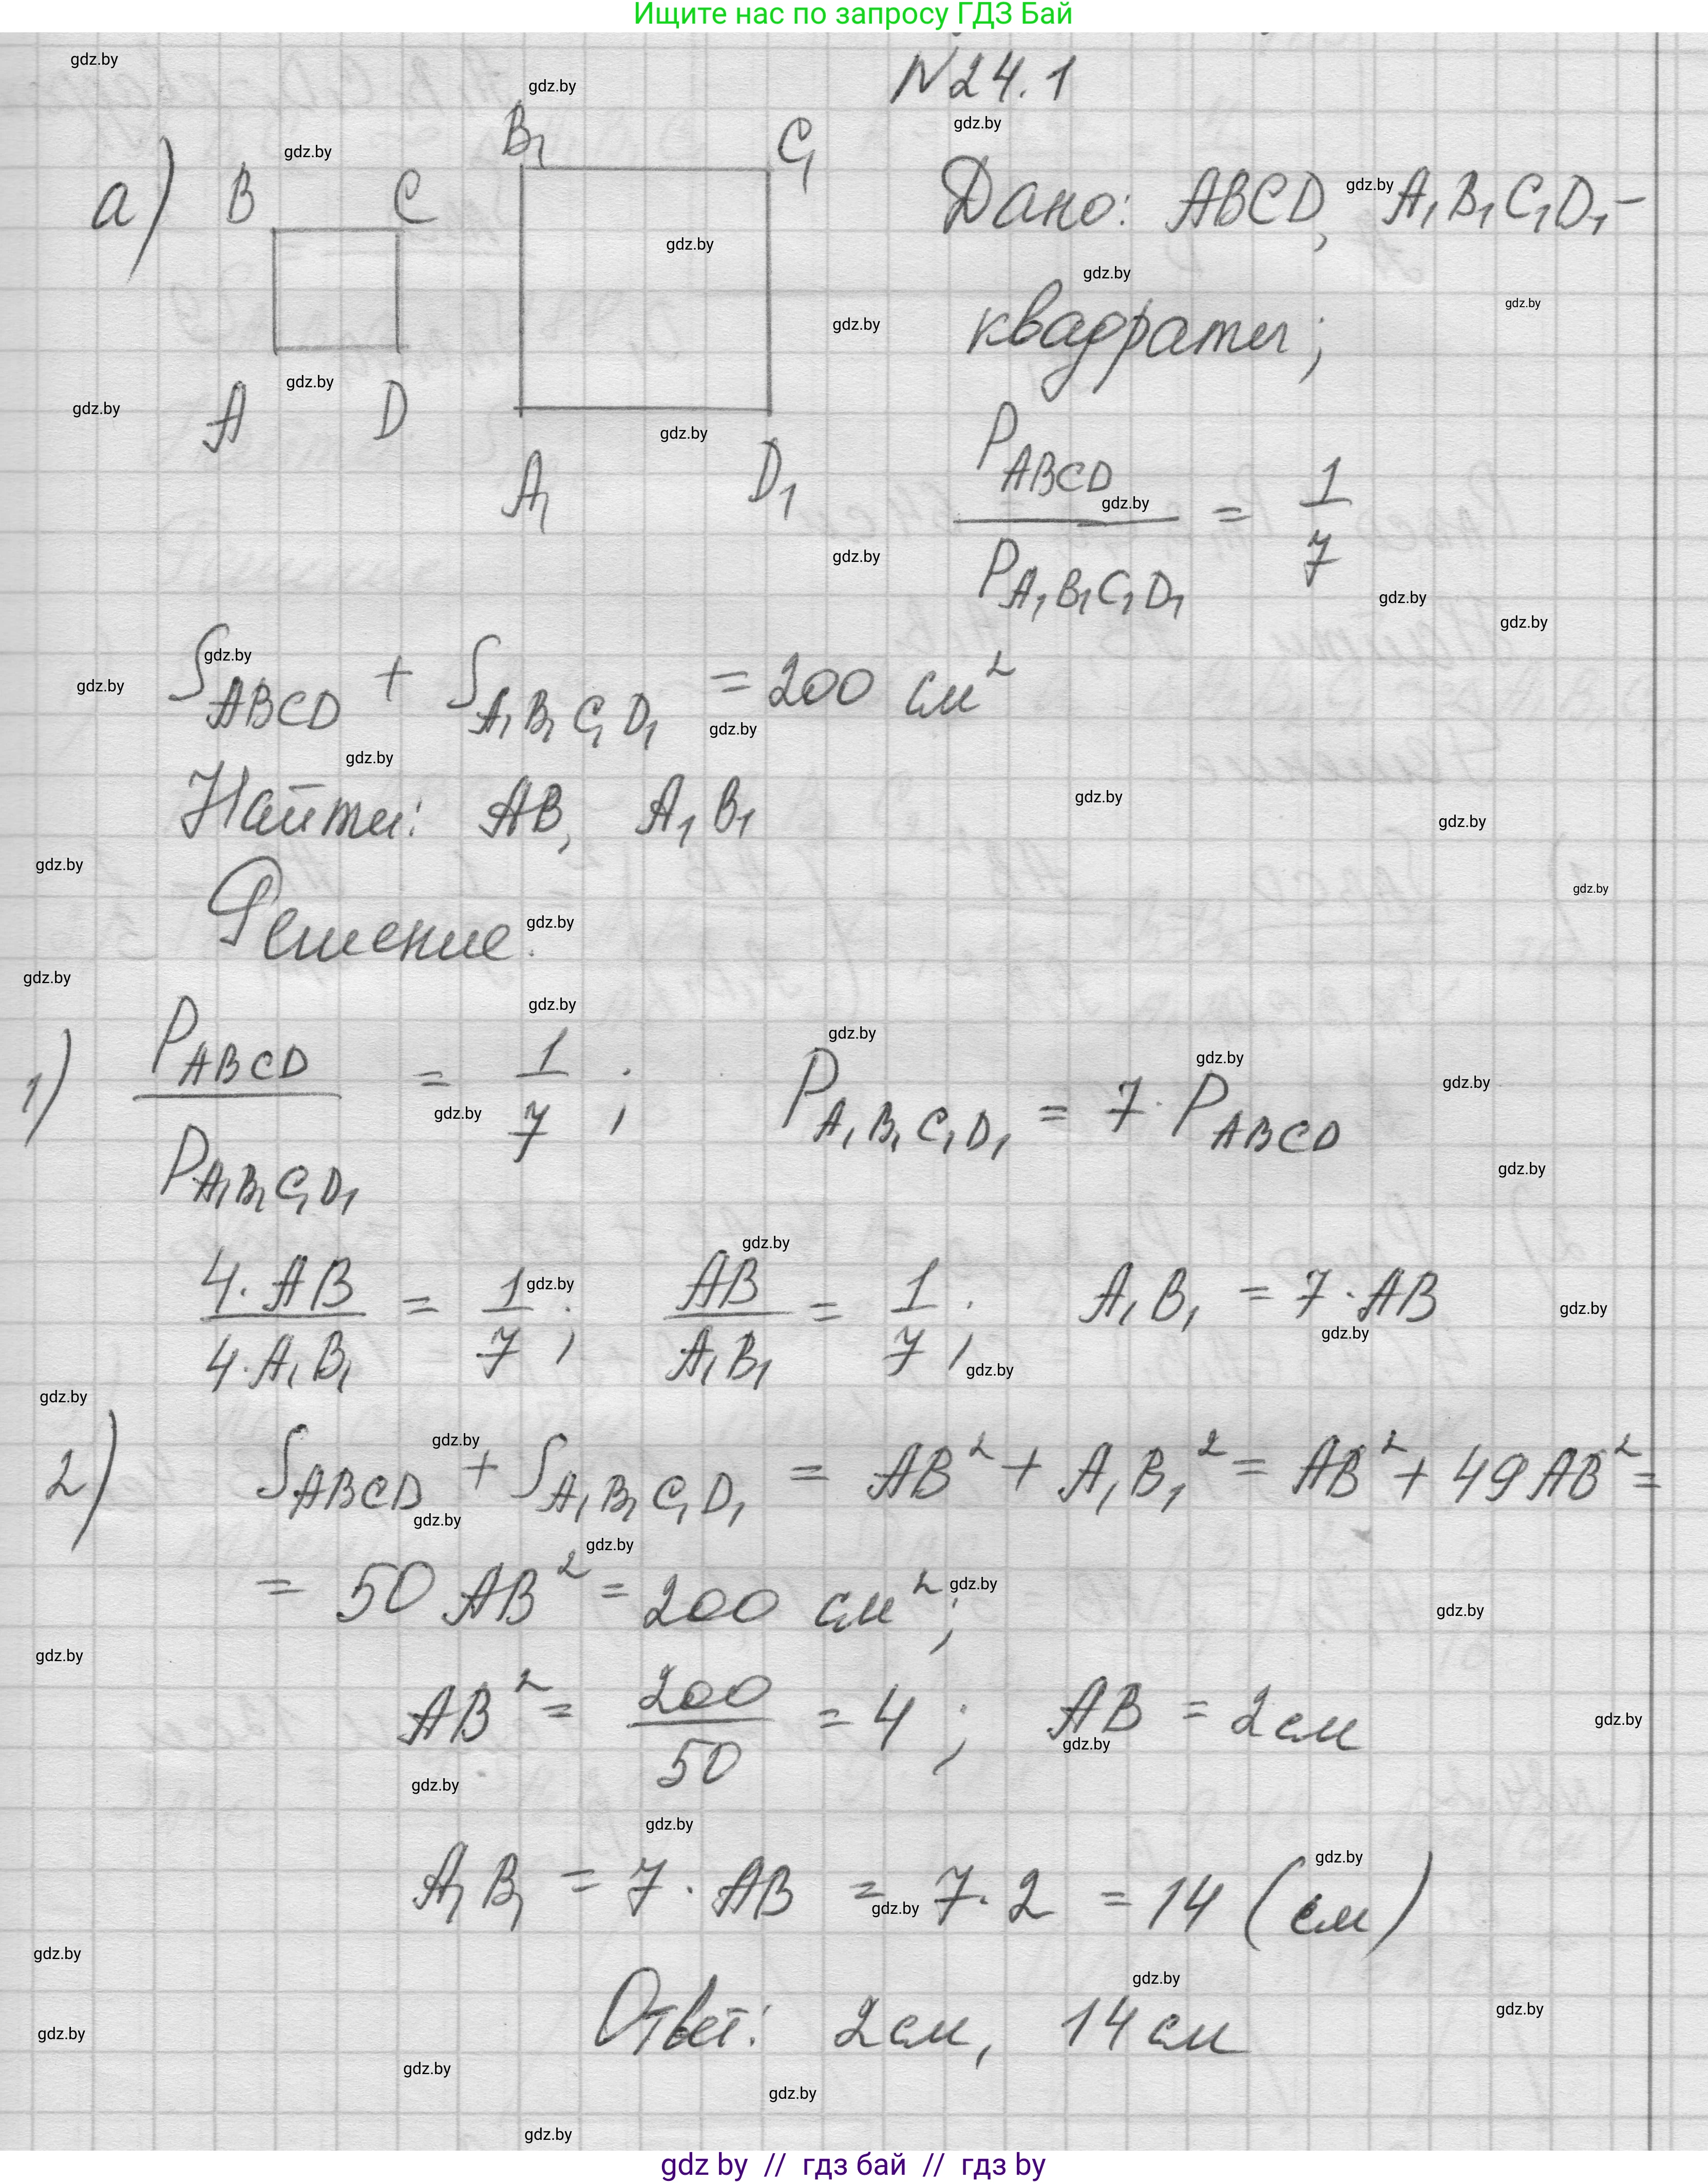 Ищите нас по запросу ГДЗ Бай
N 24.1
а)
B C
B₁ C₁
A D
A₁ D₁
Дано: ABCD, A₁B₁C₁D₁ –
квадраты;
P_ABCD / P_A₁B₁C₁D₁ = 1/7
S_ABCD + S_A₁B₁C₁D₁ = 200 см²
Найти: AB, A₁B₁
Решение.
1) P_ABCD / P_A₁B₁C₁D₁ = 1/7; P_A₁B₁C₁D₁ = 7 · P_ABCD
4·AB / 4·A₁B₁ = 1/7; AB / A₁B₁ = 1/7; A₁B₁ = 7·AB
2) S_ABCD + S_A₁B₁C₁D₁ = AB² + A₁B₁² = AB² + 49AB² =
= 50 AB² = 200 см²;
AB² = 200/50 = 4; AB = 2 см
A₁B₁ = 7 · AB = 7·2 = 14 (см)
Ответ: 2 см, 14 см
gdz by // гдз бай // гдз by